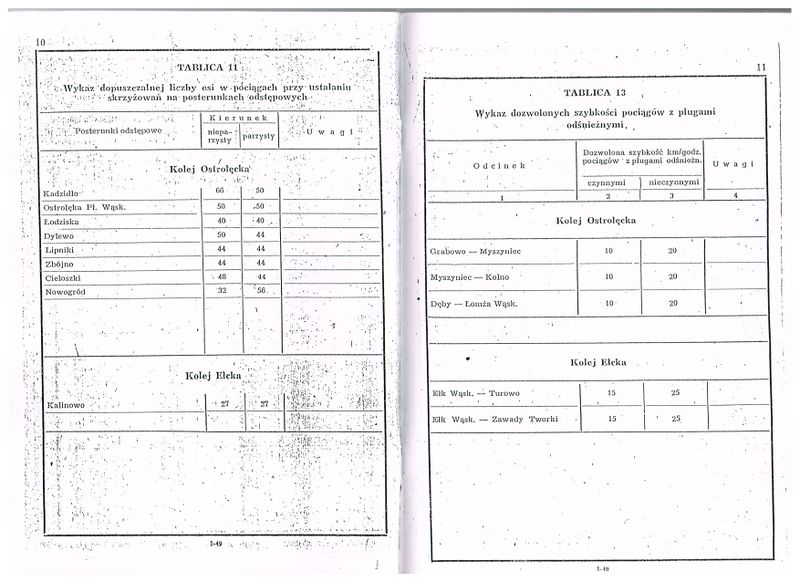 10
TABLICA 11
Wykaz dopuszczalnej liczby osi w pociągach przy ustalaniu
skrzyżowań na posterunkach odstępowych
Posterunki odstępowe
Kierunek
niepa-
rzysty
parzysty
Uwagi
Kolej Ostrołęcka
Kadzidło 66 50
Ostrołęka Pł. Wąsk. 50 50
Łodziska 40 40
Dylewo 50 44
Lipniki 44 44
Zbójno 44 44
Cieloszki 48 44
Nowogród 32 56
Kolej Ełcka
Kalinowo 27 27
I-49
11
TABLICA 13
Wykaz dozwolonych szybkości pociągów z pługami
odśnieżnymi
Odcinek
Dozwolona szybkość km/godz.
pociągów z pługami odśnieżn.
Uwagi
czynnymi nieczynnymi
1 2 3 4
Kolej Ostrołęcka
Grabowo — Myszyniec 10 20
Myszyniec — Kolno 10 20
Dęby — Łomża Wąsk. 10 20
Kolej Ełcka
Ełk Wąsk. — Turowo 15 25
Ełk Wąsk. — Zawady Tworki 15 25
I-49